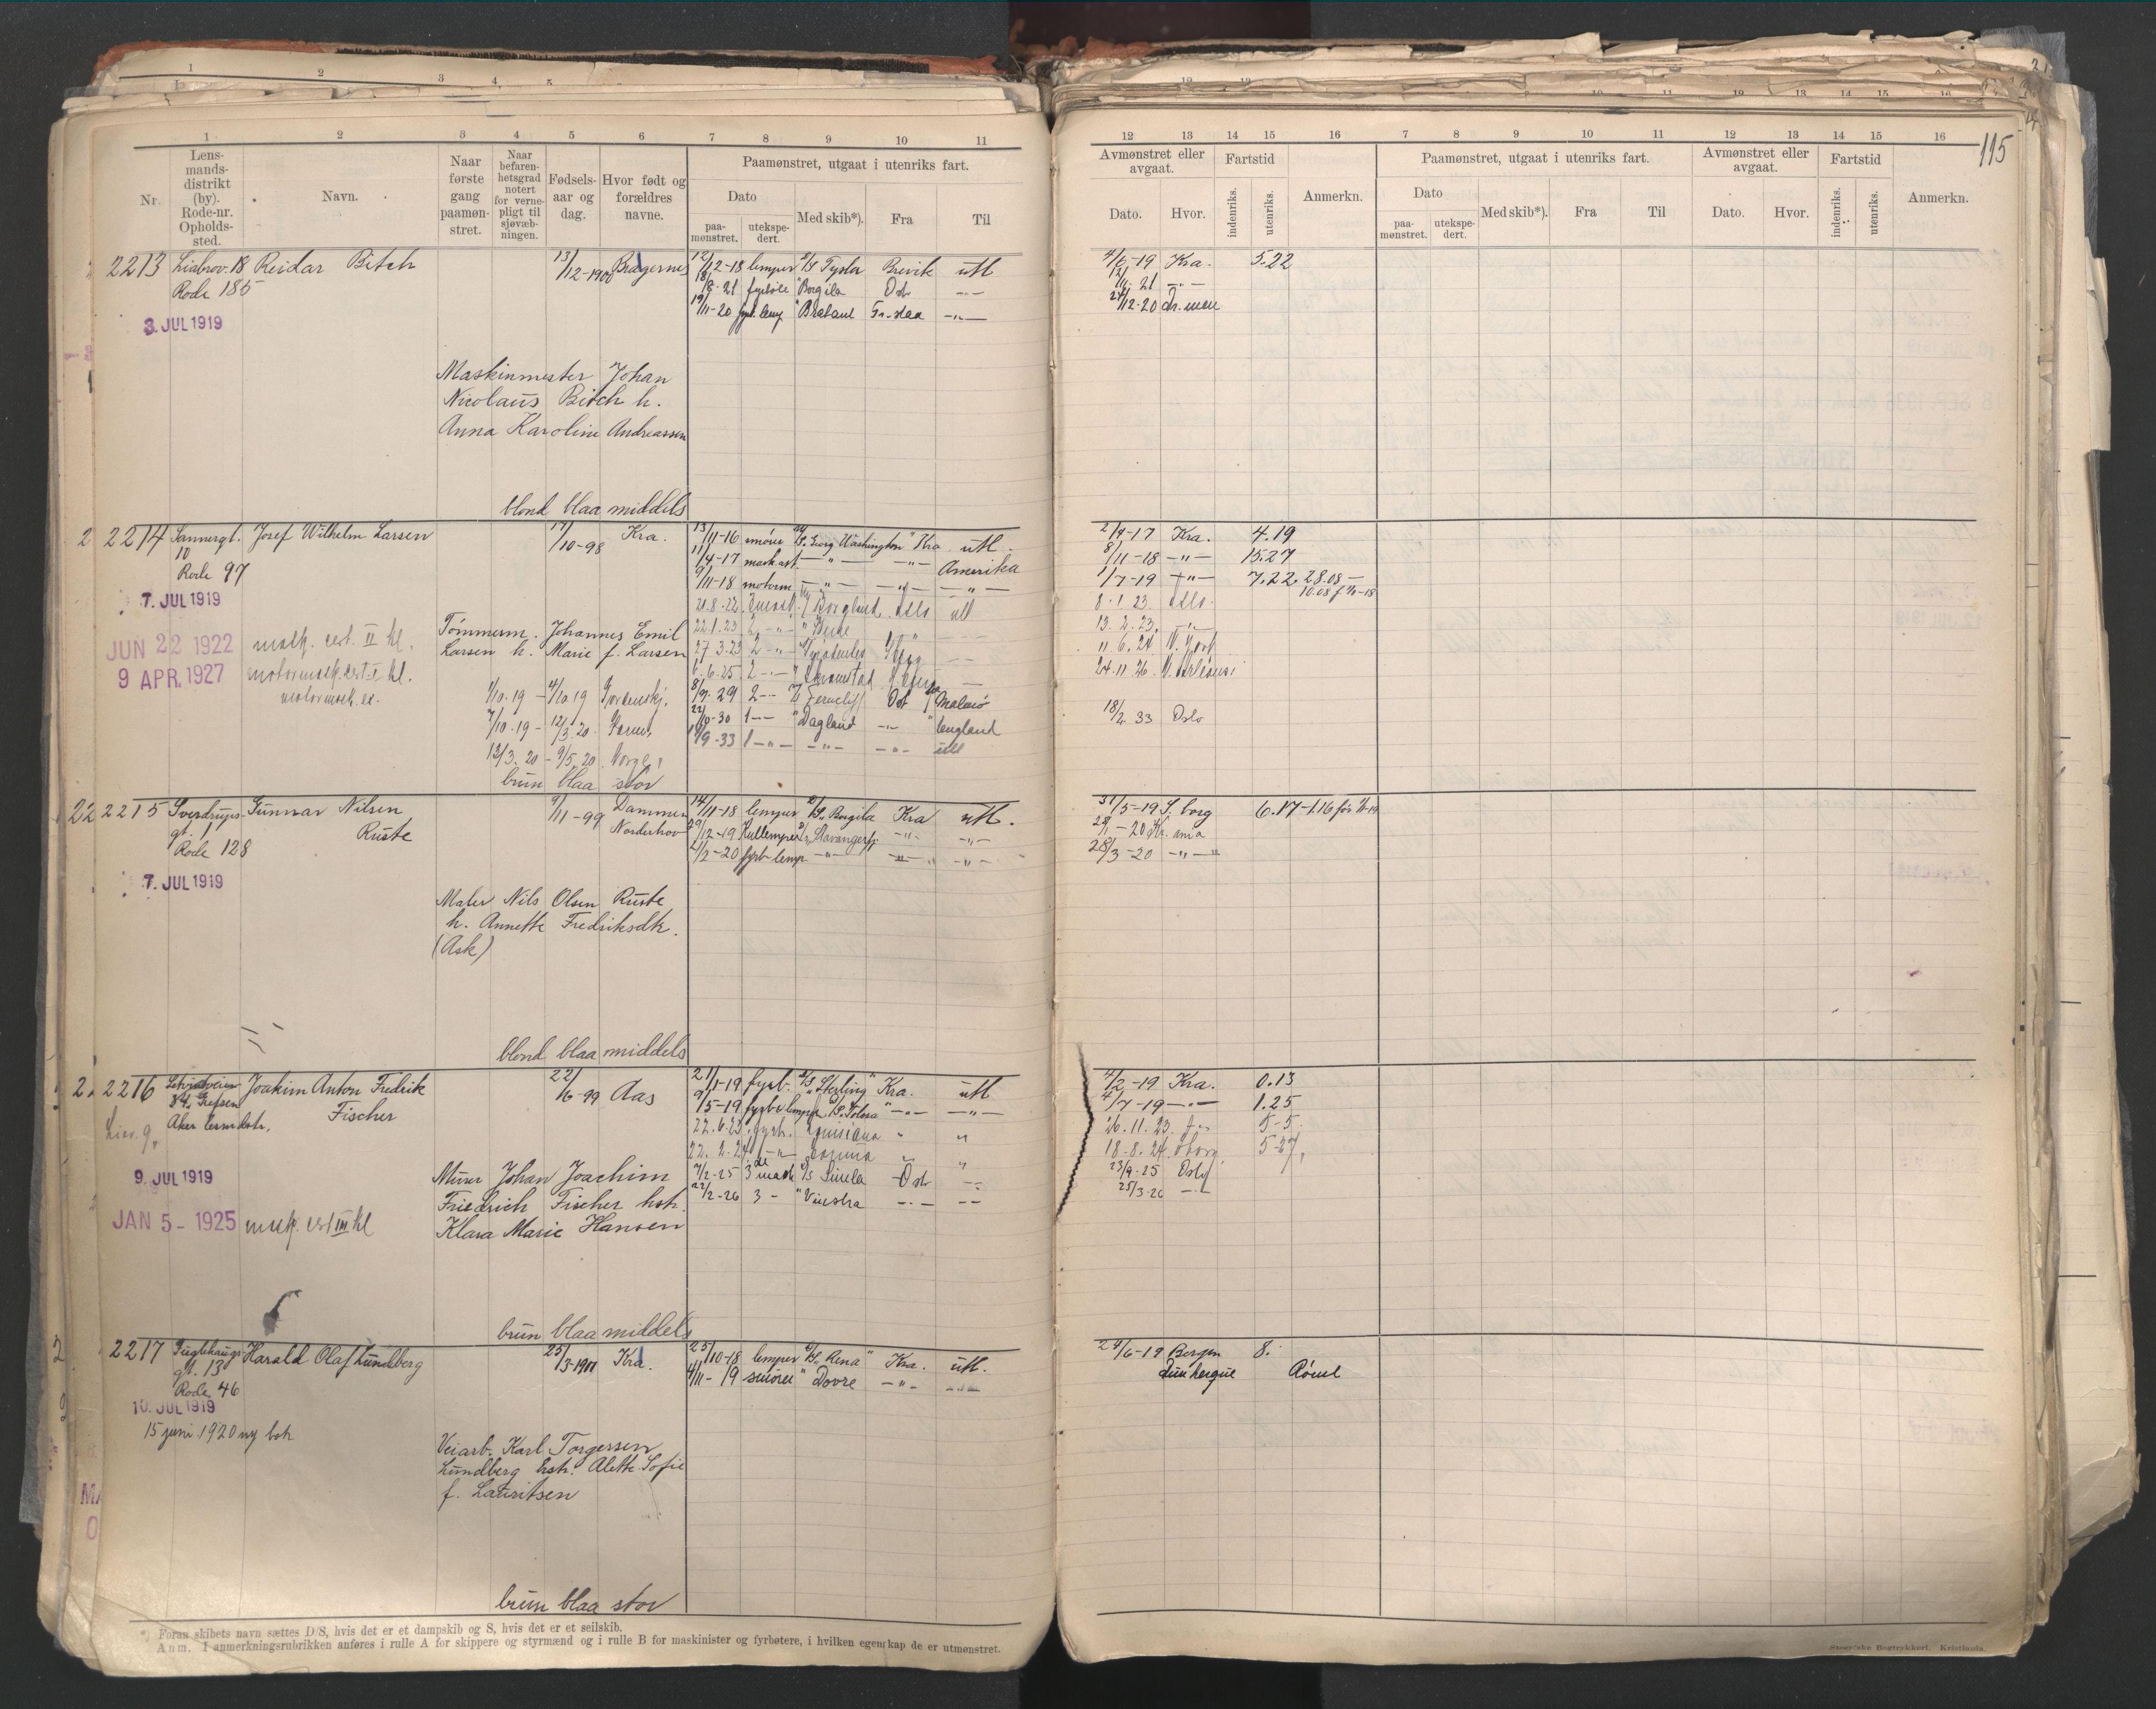 1 2 3 4 5 6 7 8 9 10 11
Nr.
Lens-
mands-
distrikt
(by).
Rode-nr.
Opholds-
sted.
Navn.
Naar
første
gang
paamøn-
stret.
Naar
befaren-
hetsgrad
notert
for verne-
pligt til
sjøvæb-
ningen.
Fødsels-
aar og
dag.
Hvor født og
forældres
navne.
Paamønstret, utgaat i utenriks fart.
Dato
paa-
mønstret.
utekspe-
dert.
Med skib*).
Fra
Til
2213 Liabrov. 18 Reidar Bitch 13/12-1900 Bragernes 12/12-18 lemper D/S Tyslor Brevik utl
Rode 185 18/8-21 fyrbøte " Borgila Osl -"-
3. JUL 1919 19/11-20 fyrb. lemp " Brabant -"-
Maskinmester Johan
Nicolaus Bitch h.
Anna Karoline Andreassen
blond blaa middels
2214 Sannergt. Josef Wilhelm Larsen 17/10-98 Kra. 13/11-16 smører M/S. Georg Washington" Kra utl.
10 11/4-17 mask.ast. -"- -"- Amerika
Rode 97 9/11-18 motorm -"- -"- -"-
7. JUL 1919 21.8.22 Borgland utl
JUN 22 1922 mask. cert. II kl. Tømmerm. Johannes Emil 22.1.23 2
Larsen h. Marie f. Larsen 27.3.23 2 -"-
9 APR. 1927 motormask. cert. I kl. 6.6.25 2 -"-
motormask. ex. 1/10.19 - 4/10 19 8/9. 29 2 -"- Ferncliff Osl Malmø
7/10.19 - 12/3.20 22/10-30 1 -"- " Dagland -"- England
13/3.20 - 9/5.20 Norge 1/9-33 1 -"- -"- -"- utl
brun blaa stor
2215 Sverdrups- Gunnar Nilsen 9/11-99 Dammen 14/11-18 lemper D/S. Borgila Kra utl.
gt. 1 Ruste Norderhov 29/12-19 Kullemper D/S Stavangerfj. -"- -"-
Rode 128 2/2-20 fyrb lemp. -"- -"- -"-
7. JUL 1919
Maler Nils Olsen Ruste
h. Annette Fredriksdtr.
(Ask)
blond blaa middels
2216 Joakim Anton Fredrik 22/6-99 Aas 21/1-19 fyrb. D/S "Sterling" Kra. utl
34, Grefsen Fischer 9/5-19 fyrbø lemper D/S. Tolosa" -"- -"-
Aker lensmdstr. 22.6.23 fyrb. Louisiana " "
Lier. 9. 22. 2. 24. -"- " "
9. JUL 1919 Murer Johan Joachim 7/2-25 3de mask D/S Simla Osl -"-
Friedrich Fischer hstr. 22/2-26 3 - " Vinstra -"- -"-
JAN 5 - 1925 mask. cert III kl Klara Marie Hansen
brun blaa middels
2217 Fuglehaugs- Harald Olaf Lundberg 25/3-1901 Kra. 23/10-18 lemper D/S. Rena" Kra. utl.
gt. 13 4/11-19 smører " Dovre -"- -"-
Rode 46
10. JUL 1919
15 juni 1920 ny bok
Veiarb. Karl Torgersen
Lundberg hstr. Alette Sofie
f. Lauritsen
brun blaa stor
*) Foran skibets navn sættes D/S, hvis det er et dampskib og S, hvis det er et seilskib.
Anm. I anmerkningsrubrikken anføres i rulle A for skippere og styrmænd og i rulle B for maskinister og fyrbøtere, i hvilken egenskap de er utmønstret.
115
12 13 14 15 16 7 8 9 10 11 12 13 14 15 16
Avmønstret eller
avgaat.
Dato. Hvor.
Fartstid
indenriks. utenriks.
Anmerkn.
Paamønstret, utgaat i utenriks fart.
Dato
paa-
mønstret.
utekspe-
dert.
Med skib*). Fra Til
Avmønstret eller
avgaat.
Dato. Hvor.
Fartstid
indenriks. utenriks.
Anmerkn.
4/6-19 Kra. 5.22
12/11.21 -"-
24/12.20 Dr.men
2/4-17 Kra. 4.19
8/11-18 -"- 15.27
1/7-19 -"- 7.22. 28.08 -
10.08 f 1/1-18
8.1.23. Oslo
13.2.23. -"-
11.6.24 N. York
24.11.26.
18/2 33 Oslo
31/5-19 S.borg 6.17-1.16 før 1/1-19
29/1-20 Kr.ania
28/3-20 -"-
4/2-19 Kra. 0.13
4/7-19 -"- 1.25
26.11.23. 5-5
18.8.24. 5-27
23/9.25 Oslo
25/3-26 -"-
29/6-19 Bergen 8.
Dunkerque Rømt
Steen'ske Bogtrykkeri. Kristiania.